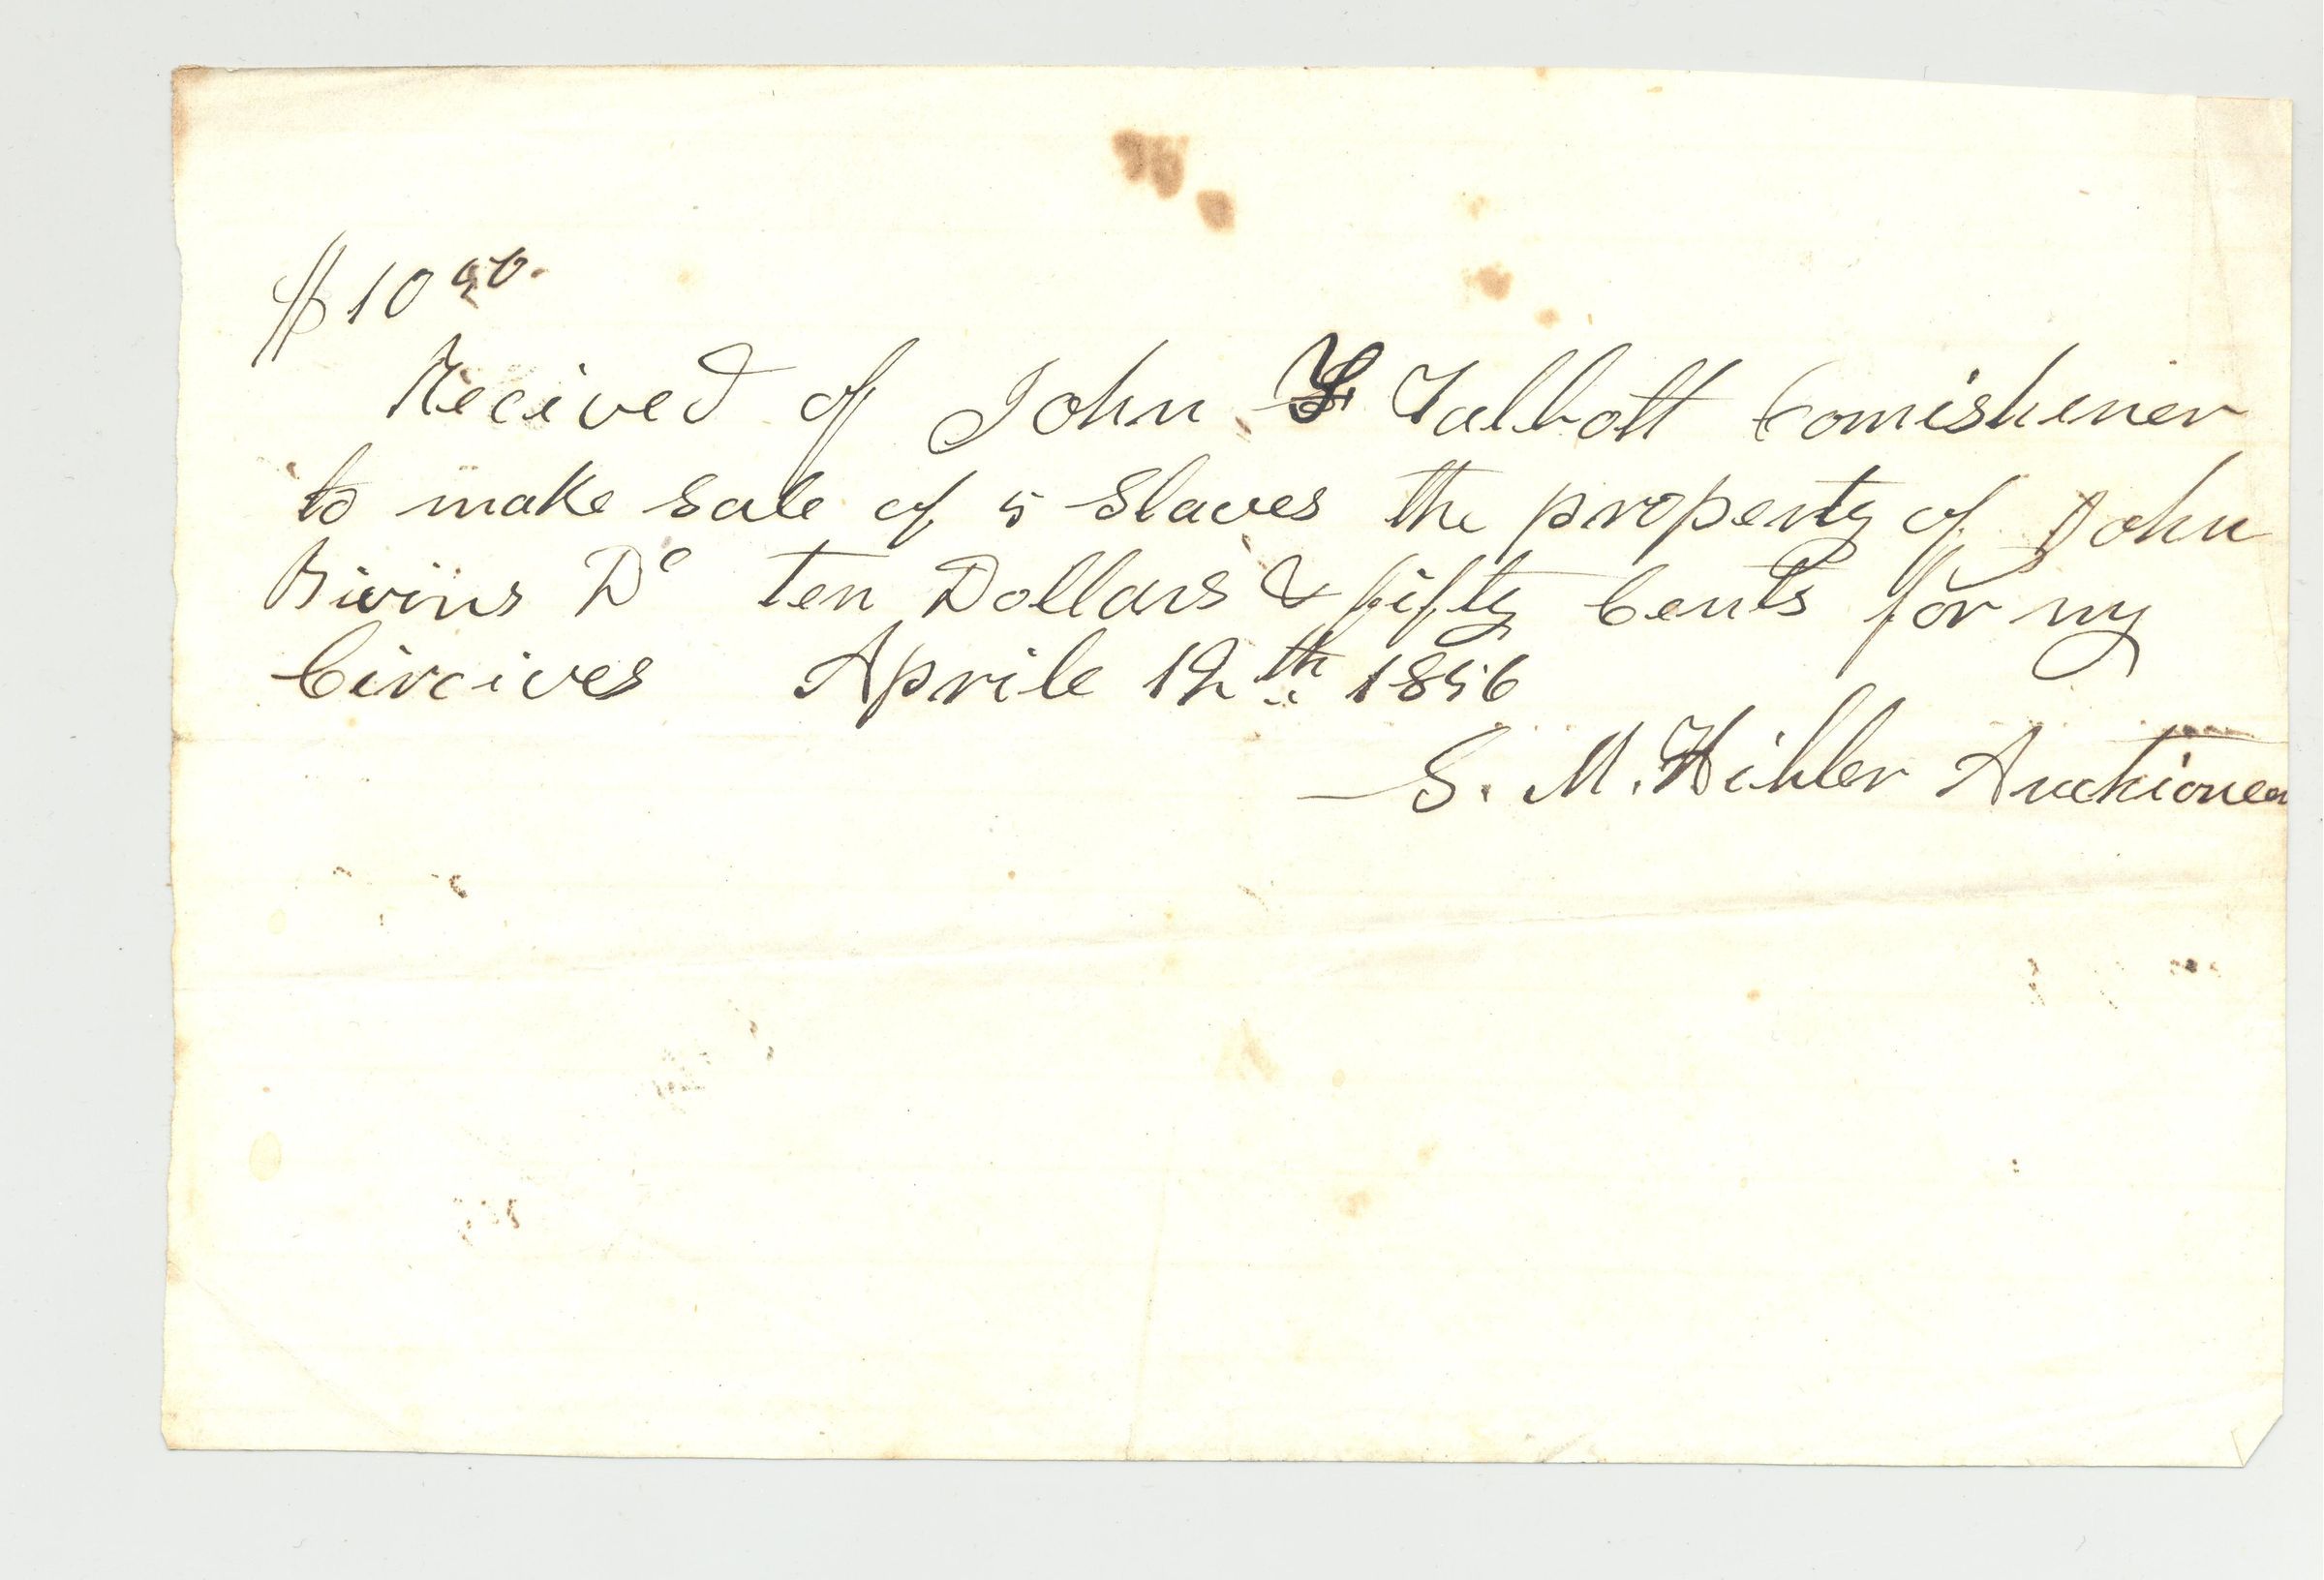 $10 50.
Recived of John Talbott Comishiner
to make sale of 5 slaves the property of John
Bivins Dc ten Dollars & fifty Cents for my
Circives Aprile 12th 1856
S. M. Hibler Auctioneer